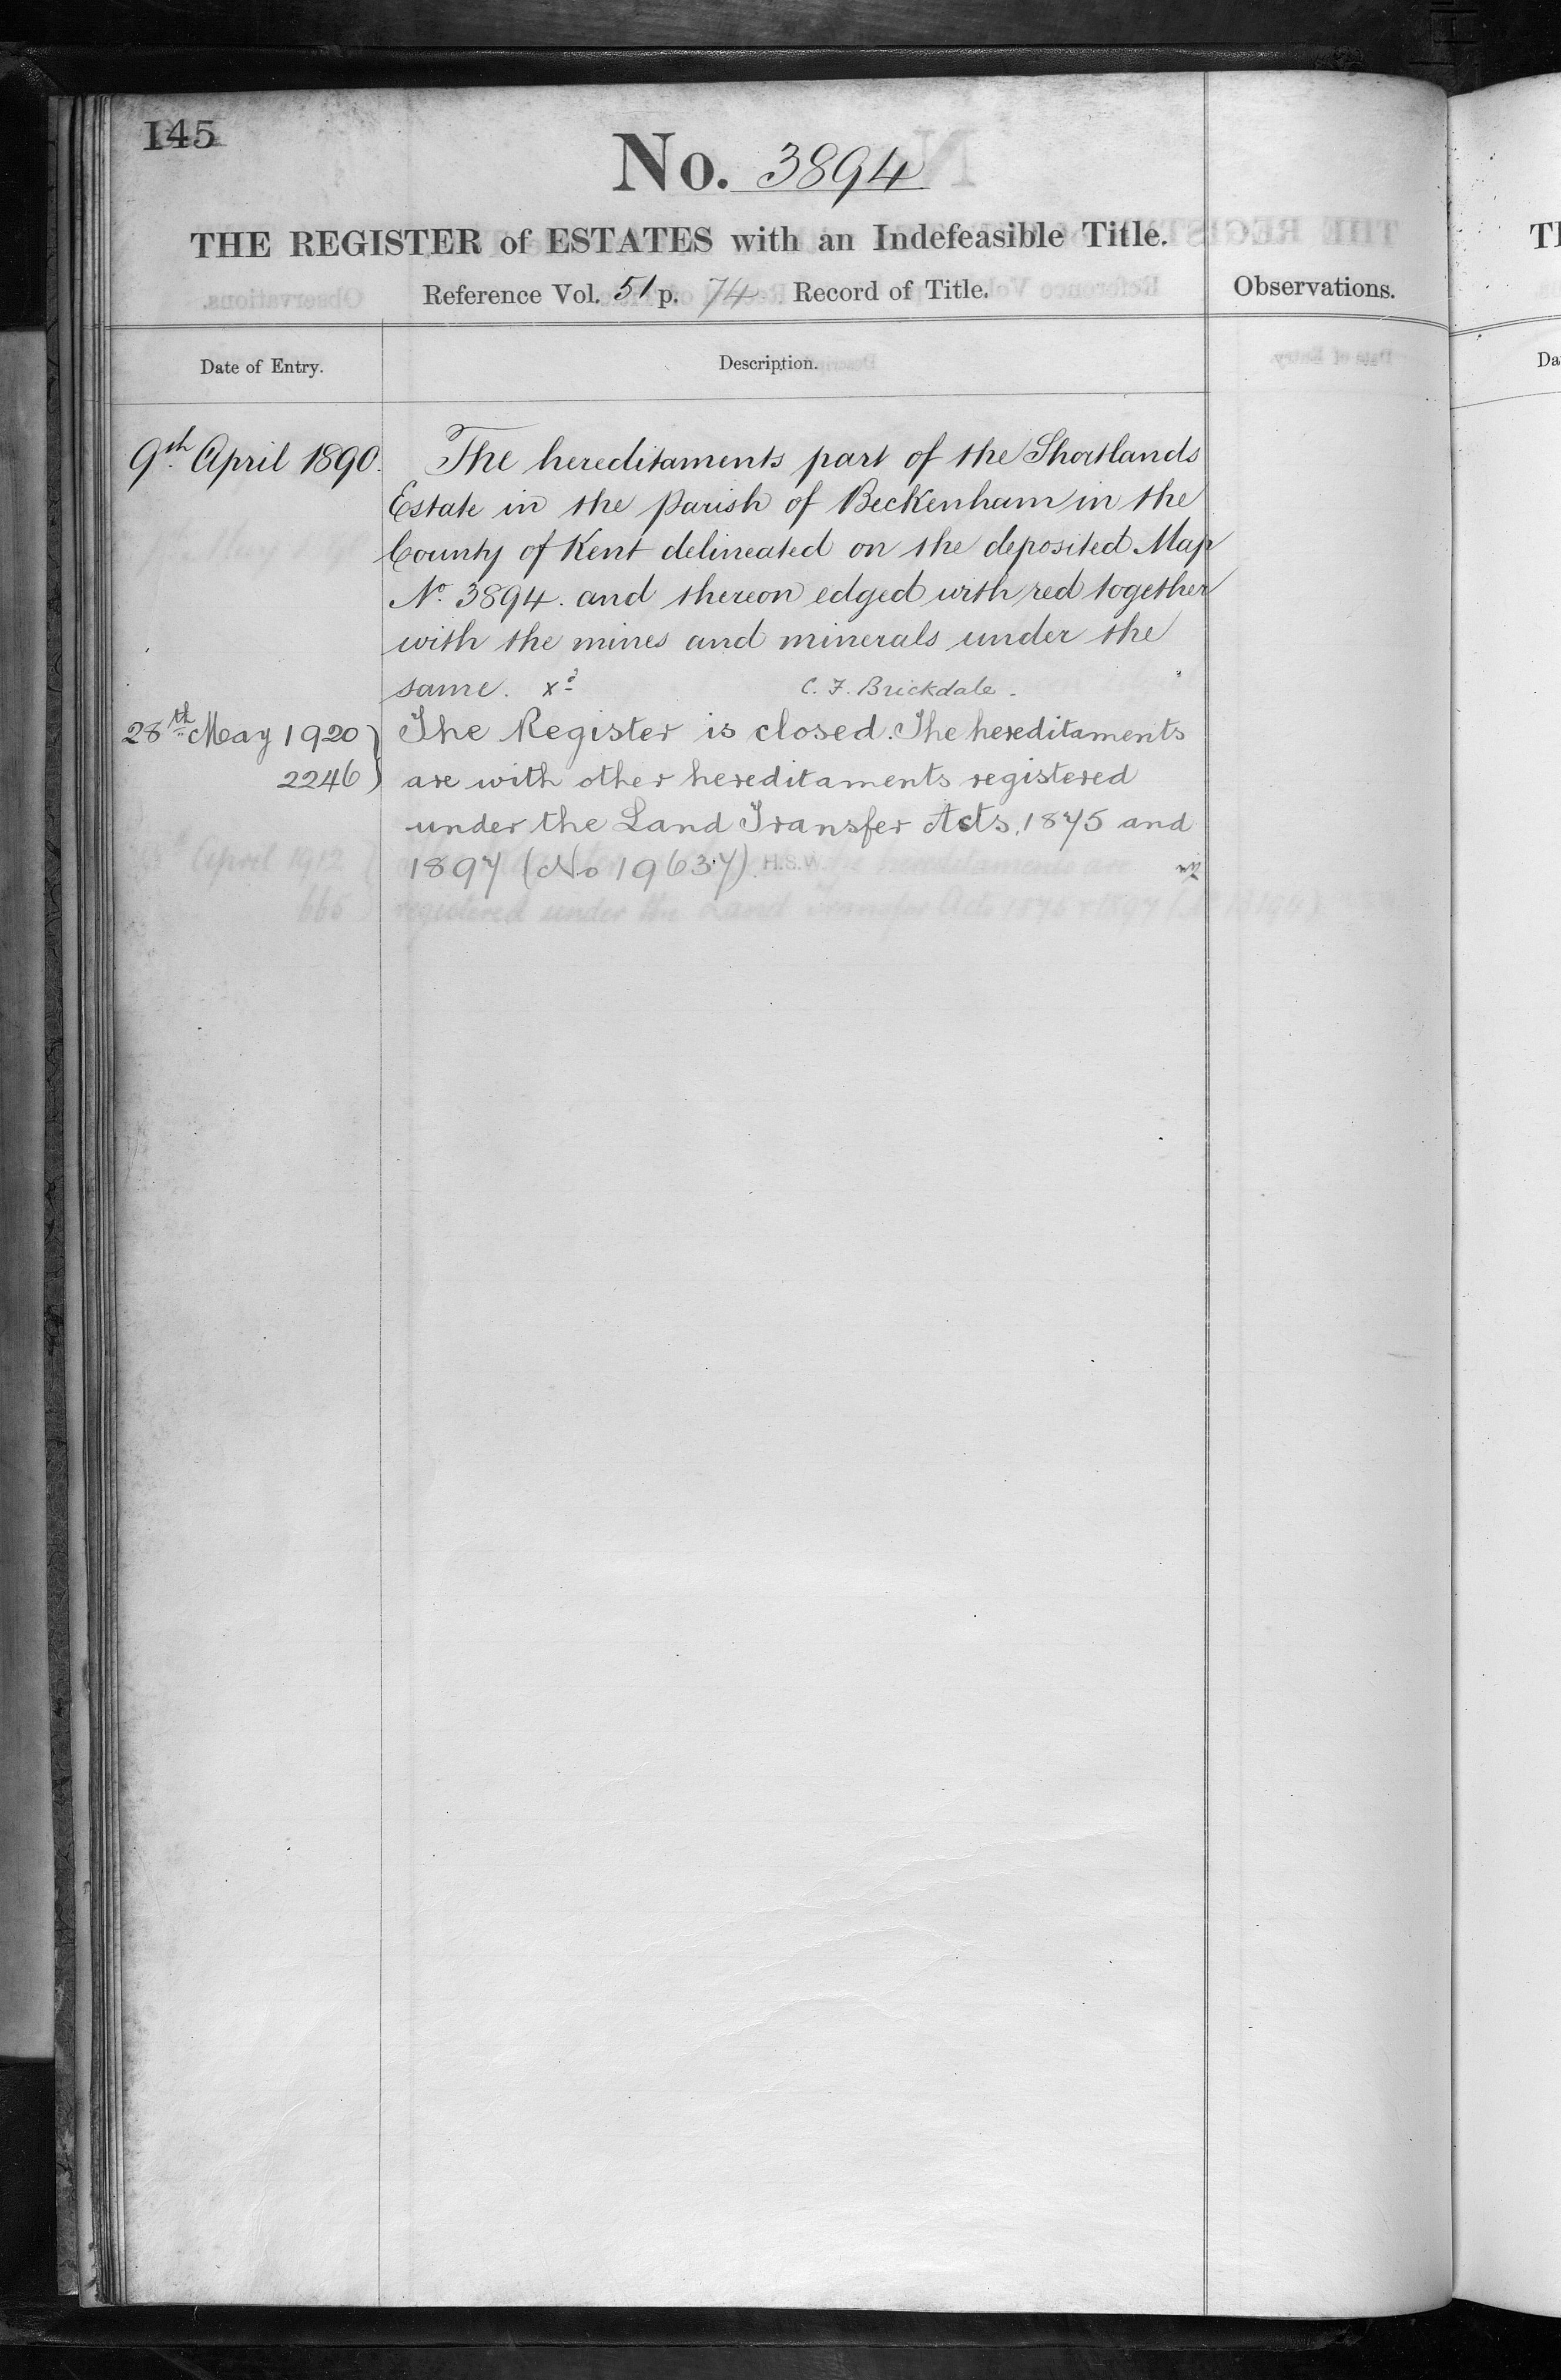 145
No. 3894
THE REGISTER of ESTATES with an Indefeasible Title.
Reference Vol. 51 p. 74 Record of Title.
Observations.
Date of Entry.
Description.
9th April 1890.
The hereditaments part of the Shortlands
Estate in the Parish of Beckenham in the
County of Kent delineated on the deposited Map
No. 3894. and thereon edged with red together
with the mines and minerals under the
same. xd C. F. Brickdale.
28th May 1920
2246
The Register is closed. The hereditaments
are with other hereditaments registered
under the Land Transfer Acts, 1875 and
1897 (No 19637). H.S.W.
April 1912
665
hereditaments are
registered under the Land Transfer Acts 1875 & 1897